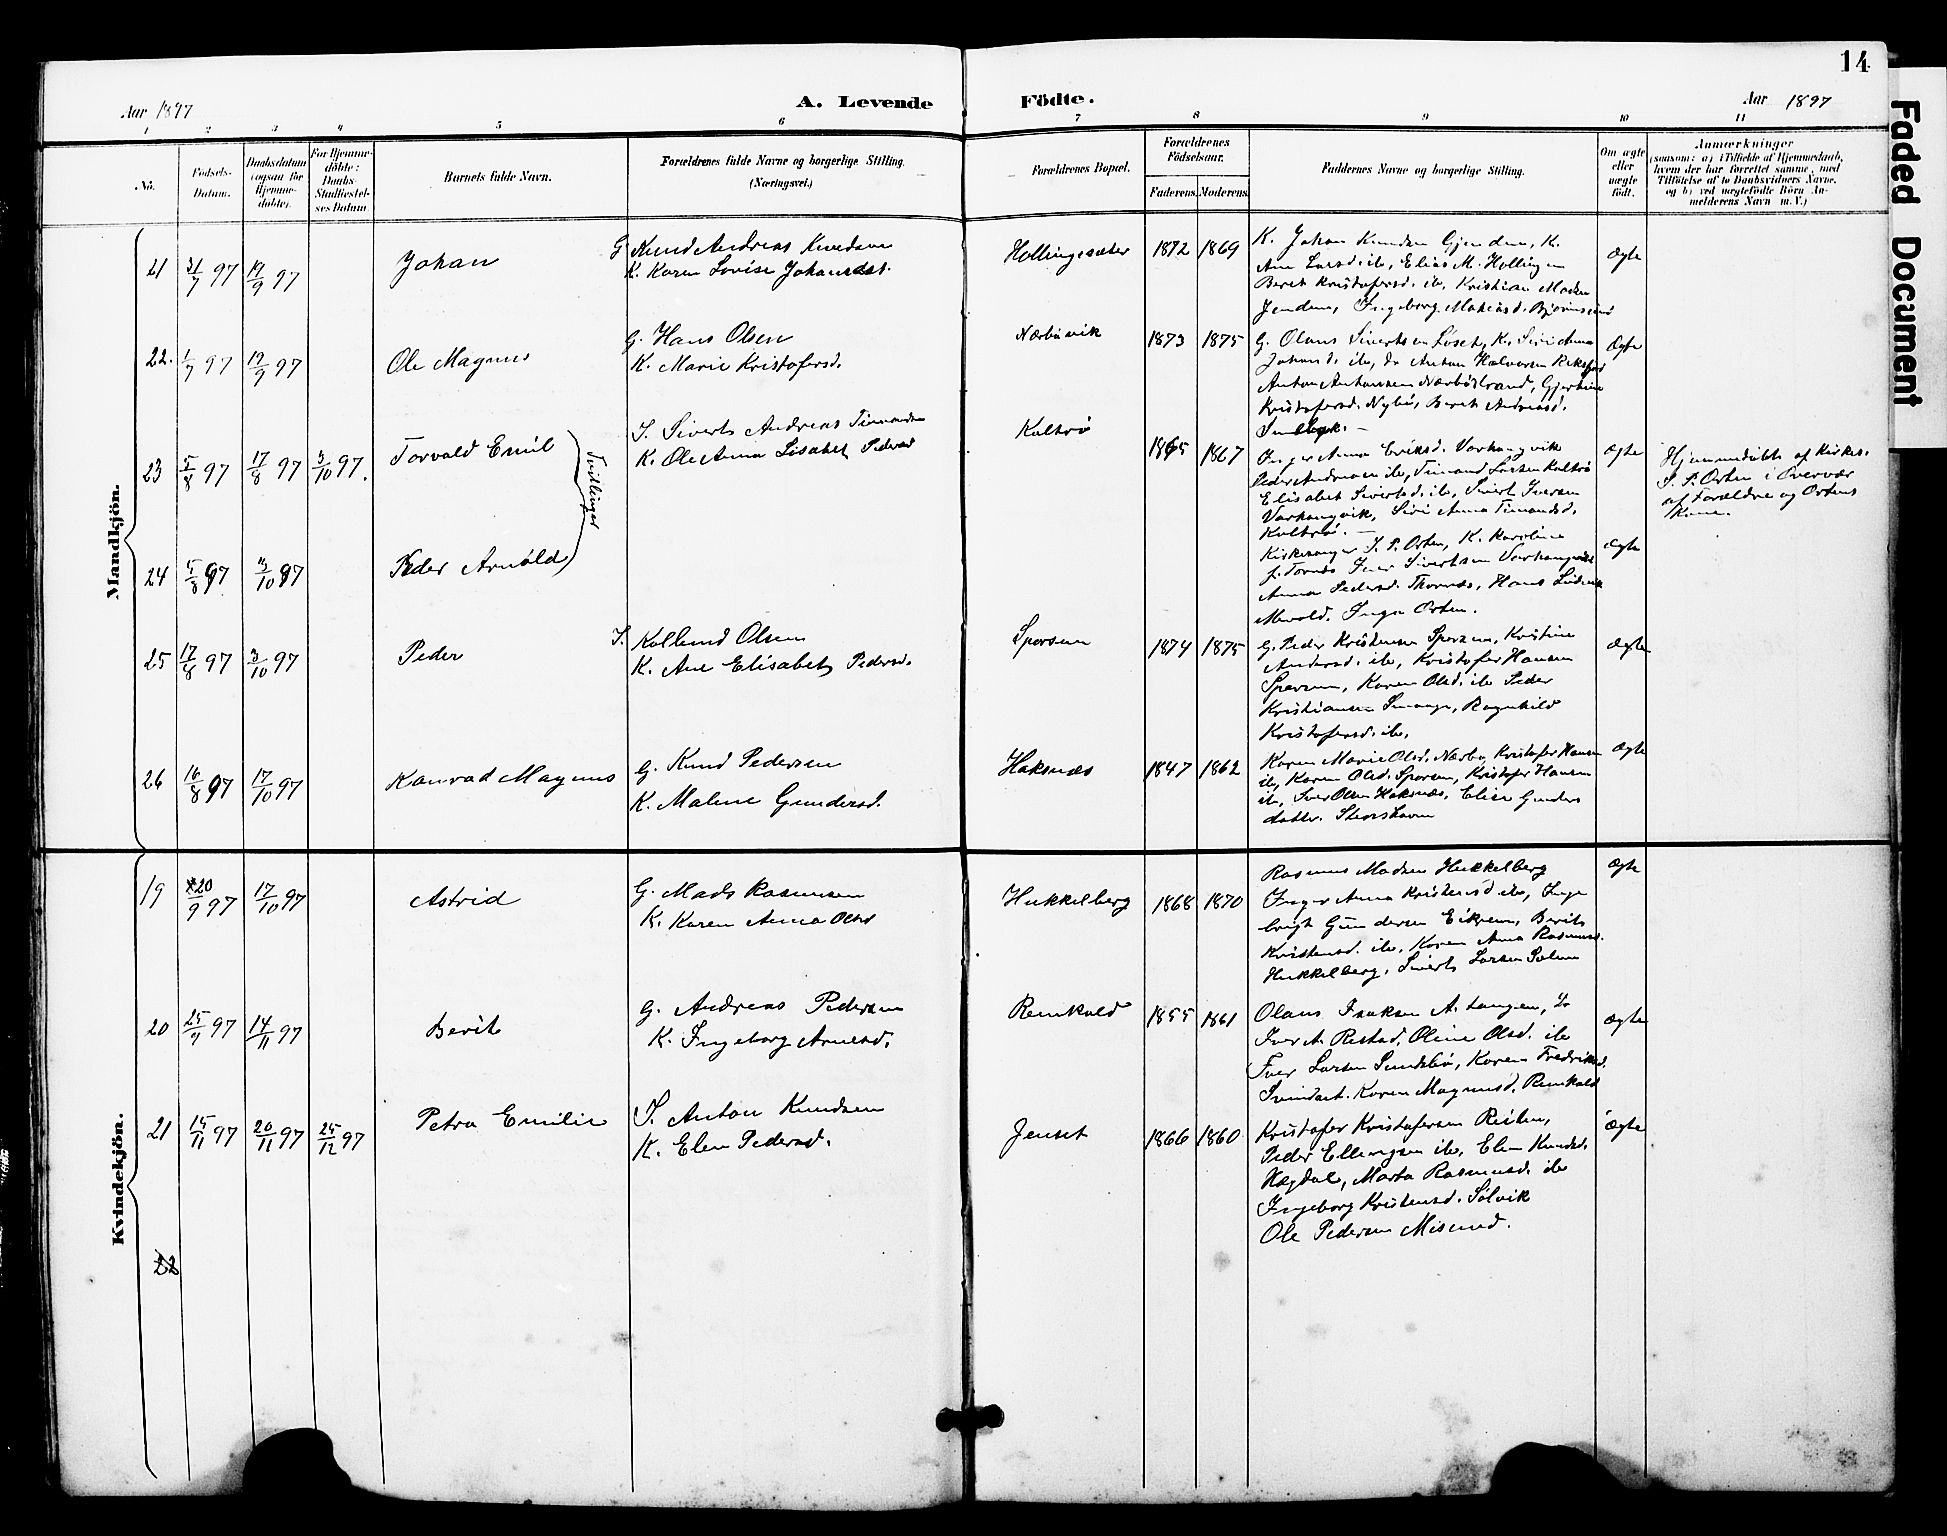 14
Aar 1897
A. Levende Födte.
Aar 1897
1 2 3 4 5 6 7 8 9 10 11
No.
Födsels-Datum.
Daabsdatum (ogsaa for Hjemme-døbte).
For Hjemme-döbte: Daabs-Stadfæstel-ses Datum
Barnets fulde Navn.
Forældrenes fulde Navne og borgerlige Stilling.
(Næringsvei.)
Forældrenes Bopæl.
Forældrenes Födselsaar.
Faderens. Moderens.
Faddernes Navne og borgerlige Stilling.
Om ægte eller uægte født.
Anmærkninger
(saasom: a) i Tilfælde af Hjemmedaab,
hvem der har forrettet samme, med
Tilføielse af to Daabsvidners Navne,
og b) ved uægtefødte Börn An-
melderens Navn m. V.)
Mandkjön.
21 31/7 97 19/9 97 Johan
G Knud Andreas Knudsen
K. Karen Lovise Johansdt.
Hollingsæter 1872 1869
K. Johan Knudsen Gjendem, K.
Ane Larsd. ib, Elias M. Hollingen
Beret Kristofersd. ib, Kristian Madsen
Jendem, Ingeborg Mathiasd.
Ægte
22. 1/7 97 19/9 97 Ole Magnus
G. Hans Olsen
K. Marie Kristofersd.
Nærbøvik 1873 1875
G. Olaus Sivertsen Löset, K. Siri Anna
Johansd. ib, Anton Halvorsen
Anton Antonsen Nærböstrand, Gjertine
Kristofersd. Nybö, Beret Andreasd.
Ægte
23 5/8 97 17/8 97 3/10 97. Torvald Emil
Tvillinger
S. Sivert Andreas Timandsen
K. Ole Anna Lisabet Pedersd
Kaltrø 1865 1867
Inger Anna Eriksd. Varhaugvik
Peder Andreasen ib, Timand Larsen Kaltrö
Elisabet Sivertsd. ib, Sivert Iversen
Varhaugvik, Siri Anna Timandsd.
Kaltrö. —
Ægte
Hjemmedöbt af Kirkes.
S. P. Orten i Overvær
af Forældre og Ortens
Kone.
24 5/8 97 3/10 97 Peder Arnold
Kirkesanger S. P. Orten, K. Karoline
f. Tornes Iver Sivertsen Varhaugvik
Anna Pedersd. Thornes, Hans
Inga Orten.
Ægte
25 17/8 97 3/10 97 Peder
S. Kollund Olsen
K. Ane Elisabet Pedersd.
Sporsem 1874 1875
G. Peder Kristensen Sporsem, Kristine
Andersd. ib, Kristofer Hansen
Sporsem, Karen Olsd. ib Peder
Kristiansen Smaage, Ragnhild
Kristofersd. ib.
Ægte
26 16/8 97 17/10 97 Konrad Magnus
G. Knud Pedersen
K. Malene Gundersd.
Haksnæs 1847 1862
Karen Marie Olsd. Nærbø, Kristofer Hansen
ib, Karen Olsd. Sporsem, Kristofer Hansen
ib, Iver Olsen Haksnæs, Elise Gunders
datter. Steorshavn
Ægte
Kvindekjön.
19 20/9 97 17/10 97 Astrid
G. Mads Rasmusen
K. Karen Anna Olsd
Hukkelberg 1868 1870
Rasmus Madsen Hukkelberg
Inger Anna Kristensd ib, Inge
brigt Gundersen Eikrem, Berit
Kristensd. ib, Karen Anna Rasmusd.
Hukkelberg, Sivert Larsen Solem
Ægte
20 25/9 97 14/11 97 Berit
G. Andreas Pedersen
K. Ingeborg Arnesd.
Remkald 1855 1861
Olaus Isaksen A.
Iver A. Restad, Oline Olsd. ib
Iver Larsen Sundsbö, Karen Fredriksd.
Karen Magnusd. Remkald
Ægte
21 15/11 97 20/11 97 25/12 97 Petra Emilie
S. Anton Knudsen
K. Elen Pedersd.
Jenset 1866 1860
Kristofer Kristofersen Reiten,
Peder Ellingsen ib, Elen Knudsd.
Hægdal, Marta Rasmusd. ib
Ingeborg Kristensd. Sölvik
Ole Pedersen Misund.
Ægte
22
Faded Document